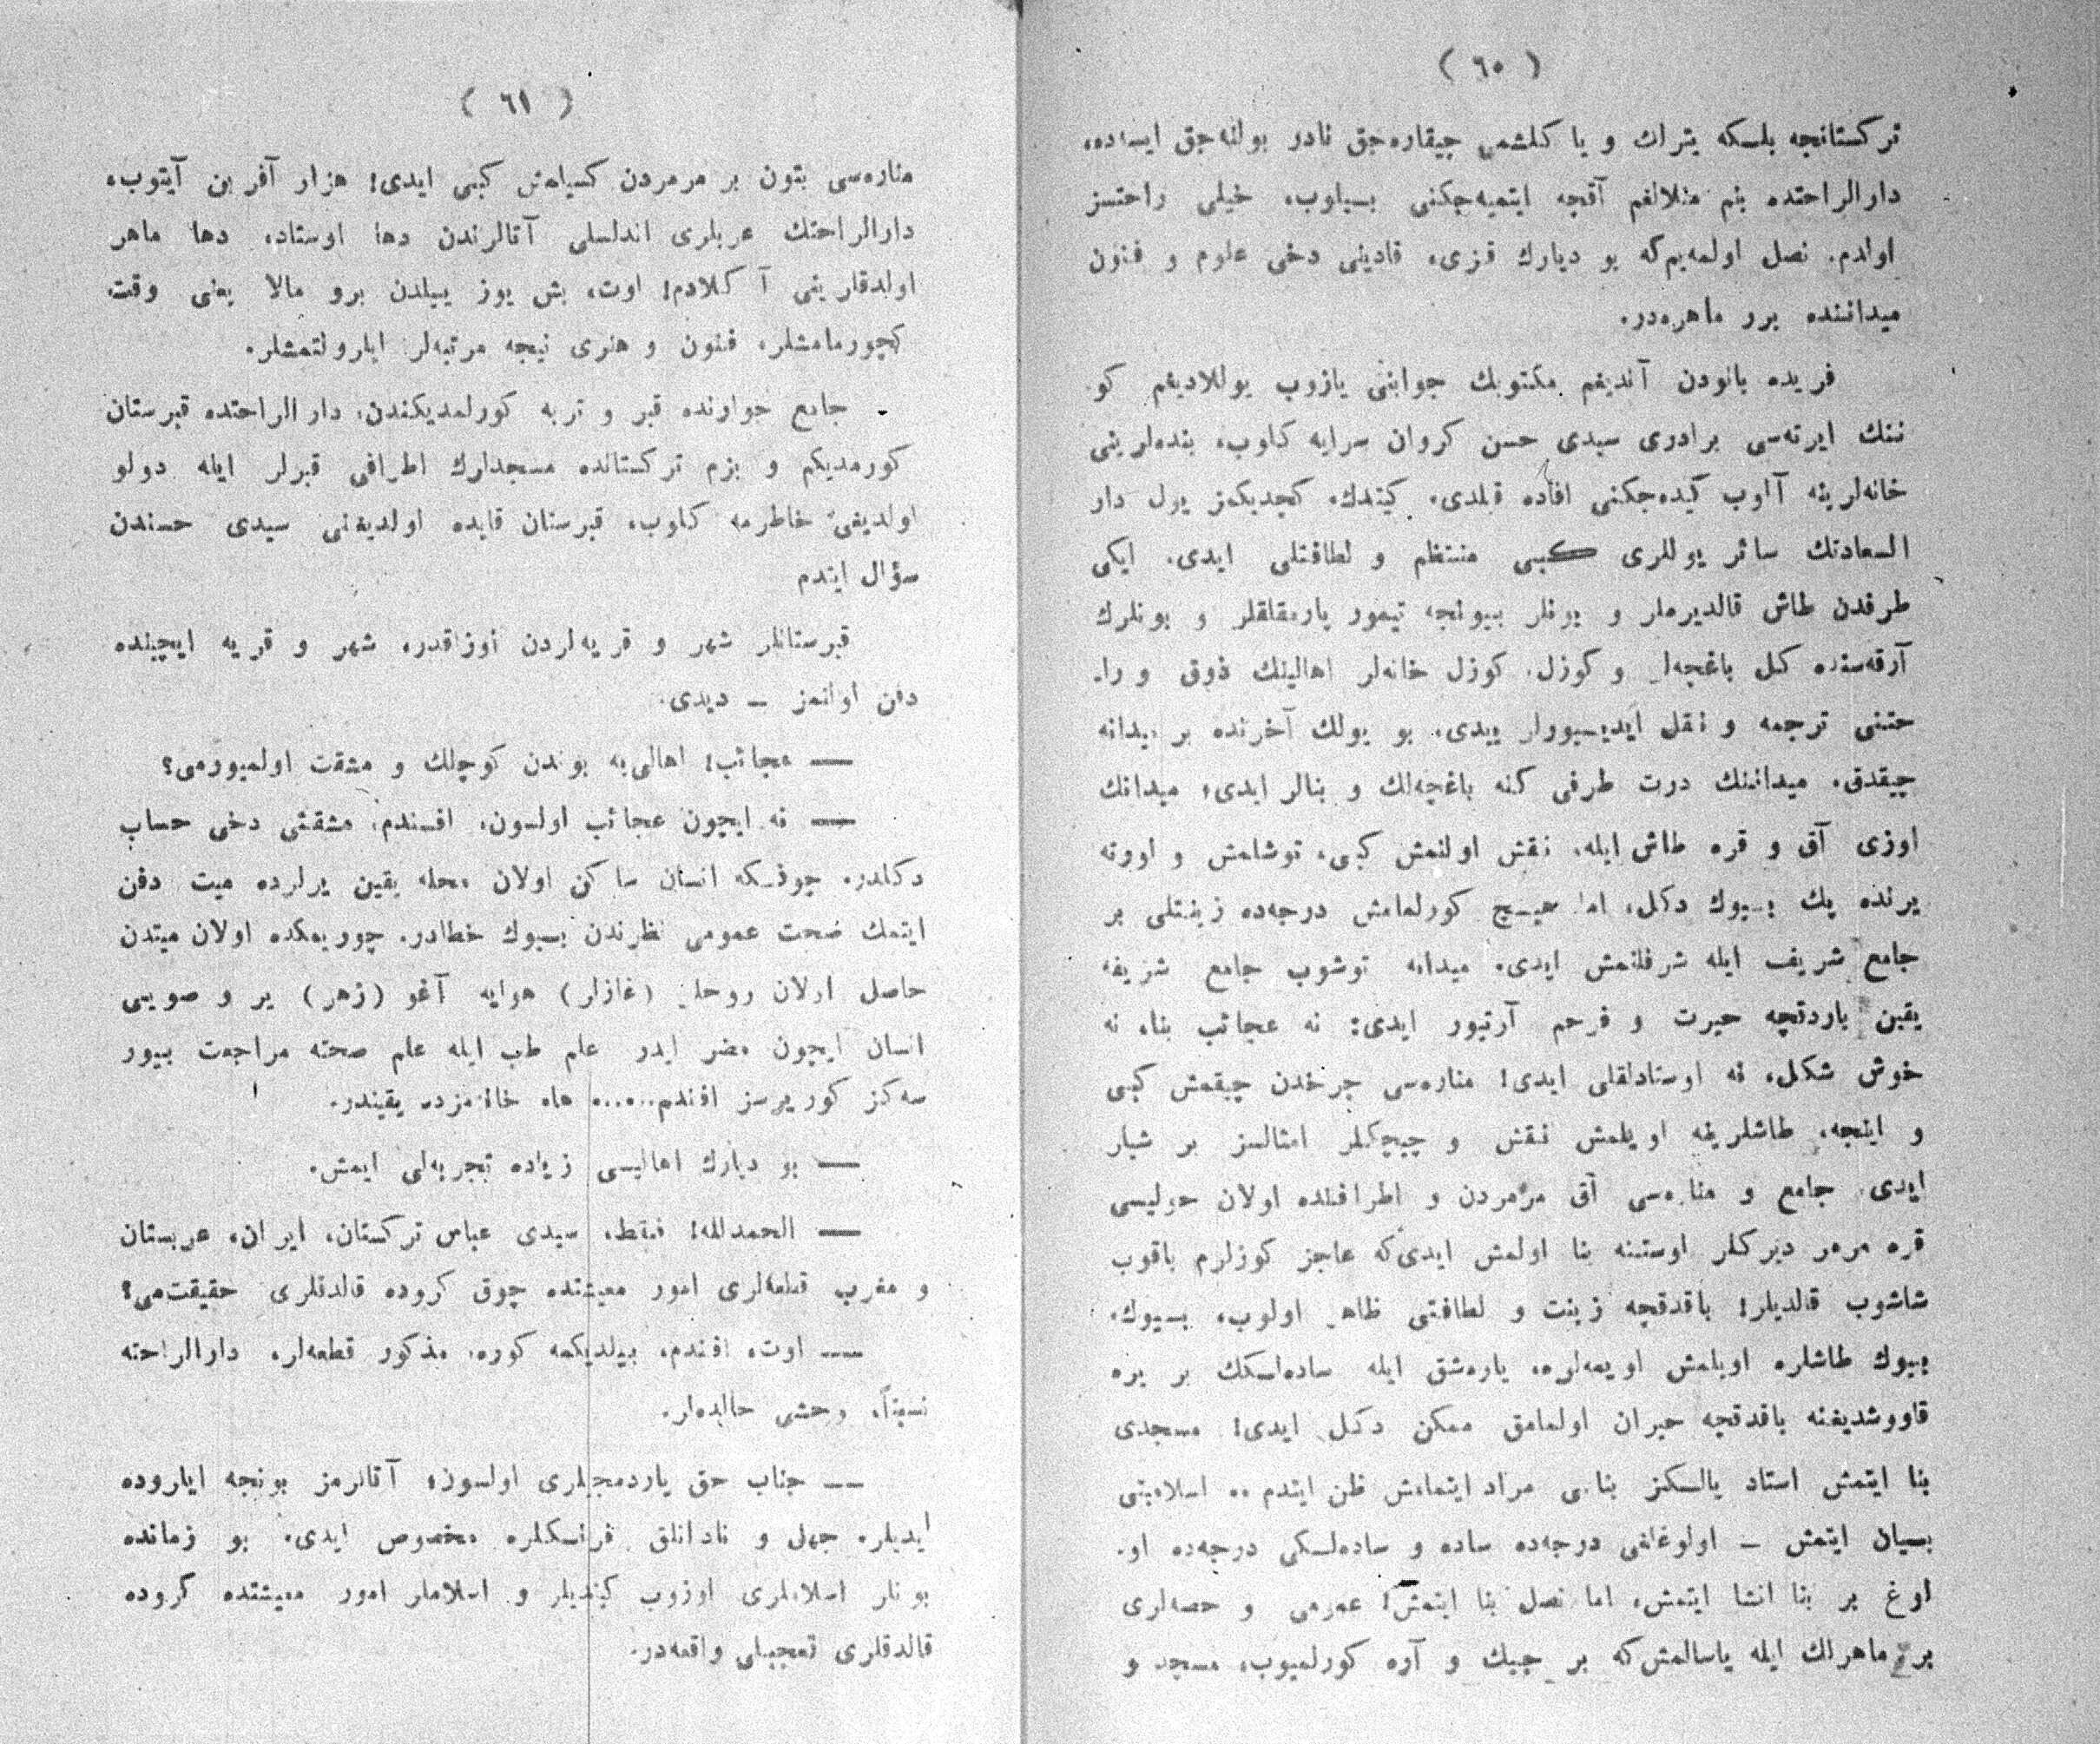 ( ٦٠ )
تركستانجه بلسكه يتراك و يا كلشمى چيقاره‌جق نادر بولنه‌جق ايسه‌ده،
دارالراحتده بنم منلالغم آقچه ايتميه‌جكنى بسيلوب، خيلى راحتسز
اولدم. نصل اولمه‌يم‌كه بو ديارك قزى، قادينى دخى علوم و فنون
ميداننده برر ماهره‌در.
فريده بانودن آنديغم مكتوبك جوابنى يازوب يوللاديغم كو-
ننك ايرته‌سى برادرى سيدى حسن كروان سرايه كلوب، بنده‌لرينى
خانه‌لرينه آلوب كيده‌جكنى افاده قيلدى. كيتدك. كچديكمز يول دار
السعادتك سائر يوللرى كبى منتظم و لطافتلى ايدى. ايكى
طرفدن طاش قالديرملر و يونلر بيونجه تيمور پارمقلقلر و بونلرك
آرقه‌سنده كل باغچه‌لر و كوزل، كوزل خانه‌لر اهالينك ذوق و را-
حتنى ترجمه و نقل ايديسيورلر ييدى. بو يولك آخرنده بر ميدانه
چيقدق. ميداننك درت طرفى كنه باغچه‌لك و بنالر ايدى؛ ميدانك
اوزى آق و قره طاش ايله، نقش اولنمش كبى، توشلمش و اورته
يرنده پك بيوك دكل، اما هيچ كورلمامش درجه‌ده زينتلى بر
جامع شريف ايله شرفلنمش ايدى. ميدانه توشوب جامع شريفه
يقين باردقچه حيرت و فرحم آرتيور ايدى: نه عجائب بناء نه
خوش شكل، نه اوستادلقلى ايدى! مناره‌سى چرخدن چيقمش كبى
و اينجه، طاشلرينه اويلمش نقش و چيچكلر امثالسز بر شيلر
ايدى. جامع و مناره‌سى آق مرمردن و اطرافنده اولان حوليسى
قره مرمر ديركلر اوستنه بنا اولمش ايدى‌كه عاجز كوزلرم باقوب
شاشوب قالديلر! باقدقچه زينت و لطافتى ظاهر اولوب، بيوك،
بيوك طاشلره اويلمش اويمه‌لره، يارەشق ايله ساده‌لسكك بر يره
قاووشديغنه باقدقچه حيران اولمامق ممكن دكل ايدى! مسجدى
بنا ايتمش استاد يالسكز بنايى مراد ايتمامش ظن ايتدم .. اسلاميتى
بسيان ايتمش — اولوغلغى درجه‌ده ساده و ساده‌لسكى درجه‌ده او-
لوغ بر بنا انشا ايتمش، اما نصل بنا ايتمش! عمومى و حصه‌لرى
بر ماهرلك ايله ياسالمش‌كه بر جيك و آره كورلميوب، مسجد و
( ٦١ )
مناره‌سى بتون بر مرمردن كسيلمش كبى ايدى! هزار آفرين آيتوب،
دارالراحتك عربلرى اندلسلى آتالرندن دها اوستاد، دها ماهر
اولدقارينى آكلادم! اوت، بش يوز ييلدن برو مالا يعنى وقت
كچورمامشلر، فنون و هنرى نيچه مرتبه‌لر ايلرولتمشلر.
جامع جوارنده قبر و تربه كورلمديكندن، دار الراحتده قبرستان
كورمديكم و بزم تركستانده مسجدلرك اطرافى قبرلر ايله دولو
اولديغى خاطرمه كلوب، قبرستان قايده اولديغنى سيدى حسندن
سؤال ايتدم
قبرستانلر شهر و قريه‌لردن اوزاقدر، شهر و قريه ايچينده
دفن اولنمز — ديدى.
— عجائب! اهالى‌يه بوندن كوچلك و مشقت اولميورمى؟
— نه ايچون عجائب اولسون، افندم، مشقتى دخى حساب
دكلدر. چونسكه انسان ساكن اولان محله يقين يرلرده ميت دفن
ايتمك صحت عمومى نظرندن بسيوك خطادر. چوريمكده اولان ميتدن
حاصل اولان روحلر (غازلر) هوايه آغو (زهر) ير و صويى
انسان ايچون مضر ايدر علم طب ايله علم صحته مراجعت بيور
سه‌كز كوريرسز افندم...... ها، خانه‌مزده يقيندر.
— بو ديارك اهاليسى زياده تجربه‌لى ايمش.
— الحمدلله! فقط، سيدى عباس تركستان، ايران، عربستان
و مغرب قطعه‌لرى امور معيشتده چوق كروده قالدقلرى حقيقت‌مى؟
— اوت، افندم، بيلديكمه كوره، مذكور قطعه‌لر، دارالراحته
نسبتاً، وحشى حالده‌لر.
— جناب حق ياردمجيلرى اولسون؛ آتالرمز بونجه ايلروده
ايديلر. جهل و نادانلق فرنسكلره مخصوص ايدى. بو زمانده
بونلر اسلاملرى اوزوب كيتديلر و اسلاملر امور معيشتده كروده
قالدقلرى تعجبلى واقعه‌در.